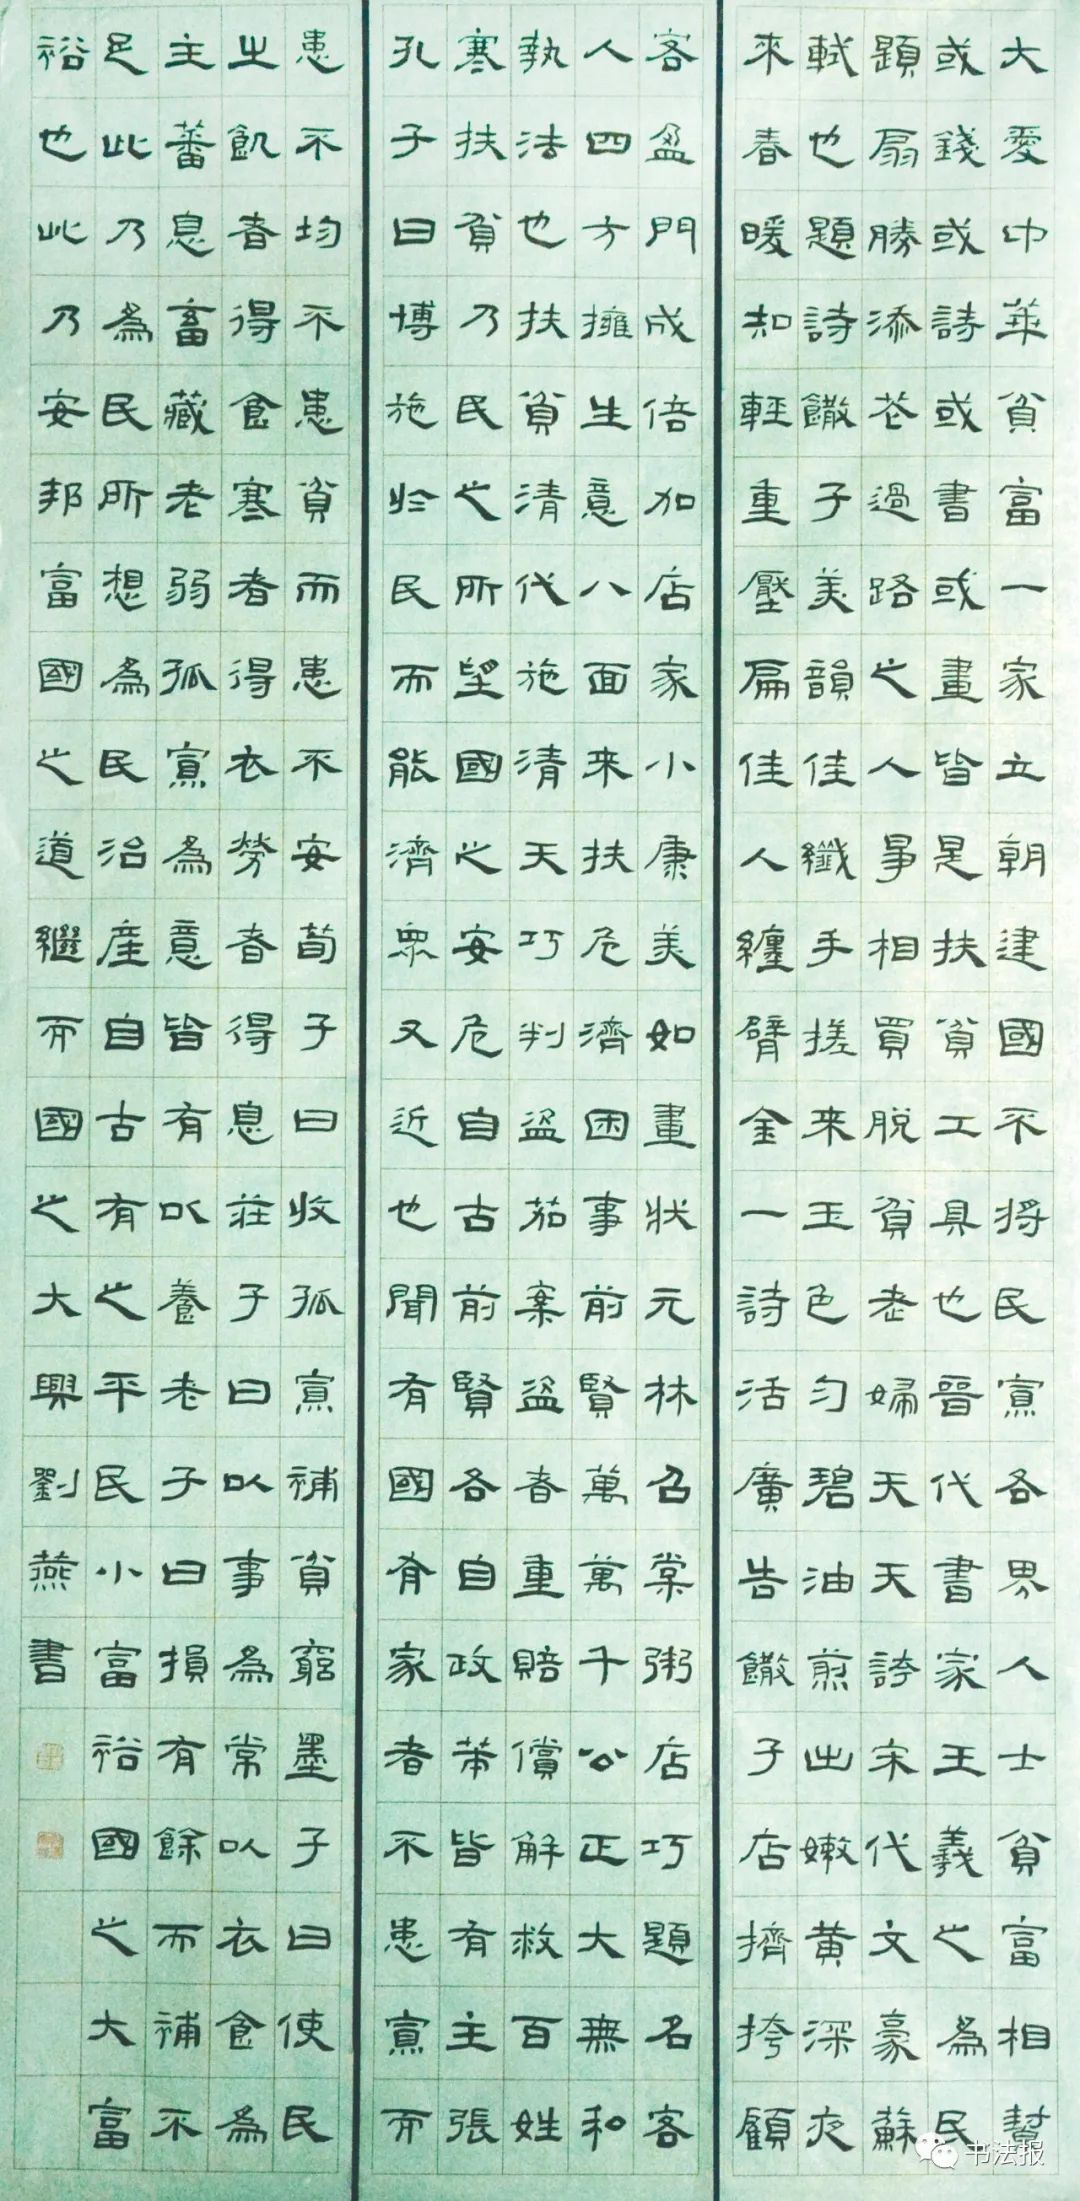 大愛中華貧富一家立朝建國不將民寡各界人士貧富相幫
或錢或詩或書或畫皆是扶貧工具也晉代書家王羲之為民
題扇勝添花過路之人爭相買脫貧老婦天天誇宋代文豪蘇
軾也題詩饊子美韻佳纖手搓来玉色勻碧油煎出嫩黄深夜
來春暖知輕重壓扁佳人纏臂金一詩活廣告饊子店擠挎顧
客盈門成倍加店家小康美如畫狀元林召棠粥店巧題名客
人四方擁生意八面来扶危濟困事前賢萬萬千公正大無和
執法也扶貧清代施清天巧判盜茄案盜春重賠償解救百姓
寒扶貧乃民之所望國之安危自古前賢各自政策皆有主張
孔子曰博施於民而能濟眾又近也聞有國有家者不患寡而
患不均不患貧而患不安荀子曰收孤寡補貧窮墨子曰使民
之飢者得食寒者得衣勞者得息莊子曰以事為常以衣食為
主蕃息畜藏老弱孤寡為意皆有以養老子曰損有餘而補不
足此乃為民所想為民治產自古有之平民小富裕國之大富
裕也此乃安邦富國之道繼而國之大興劉燕書
书法报